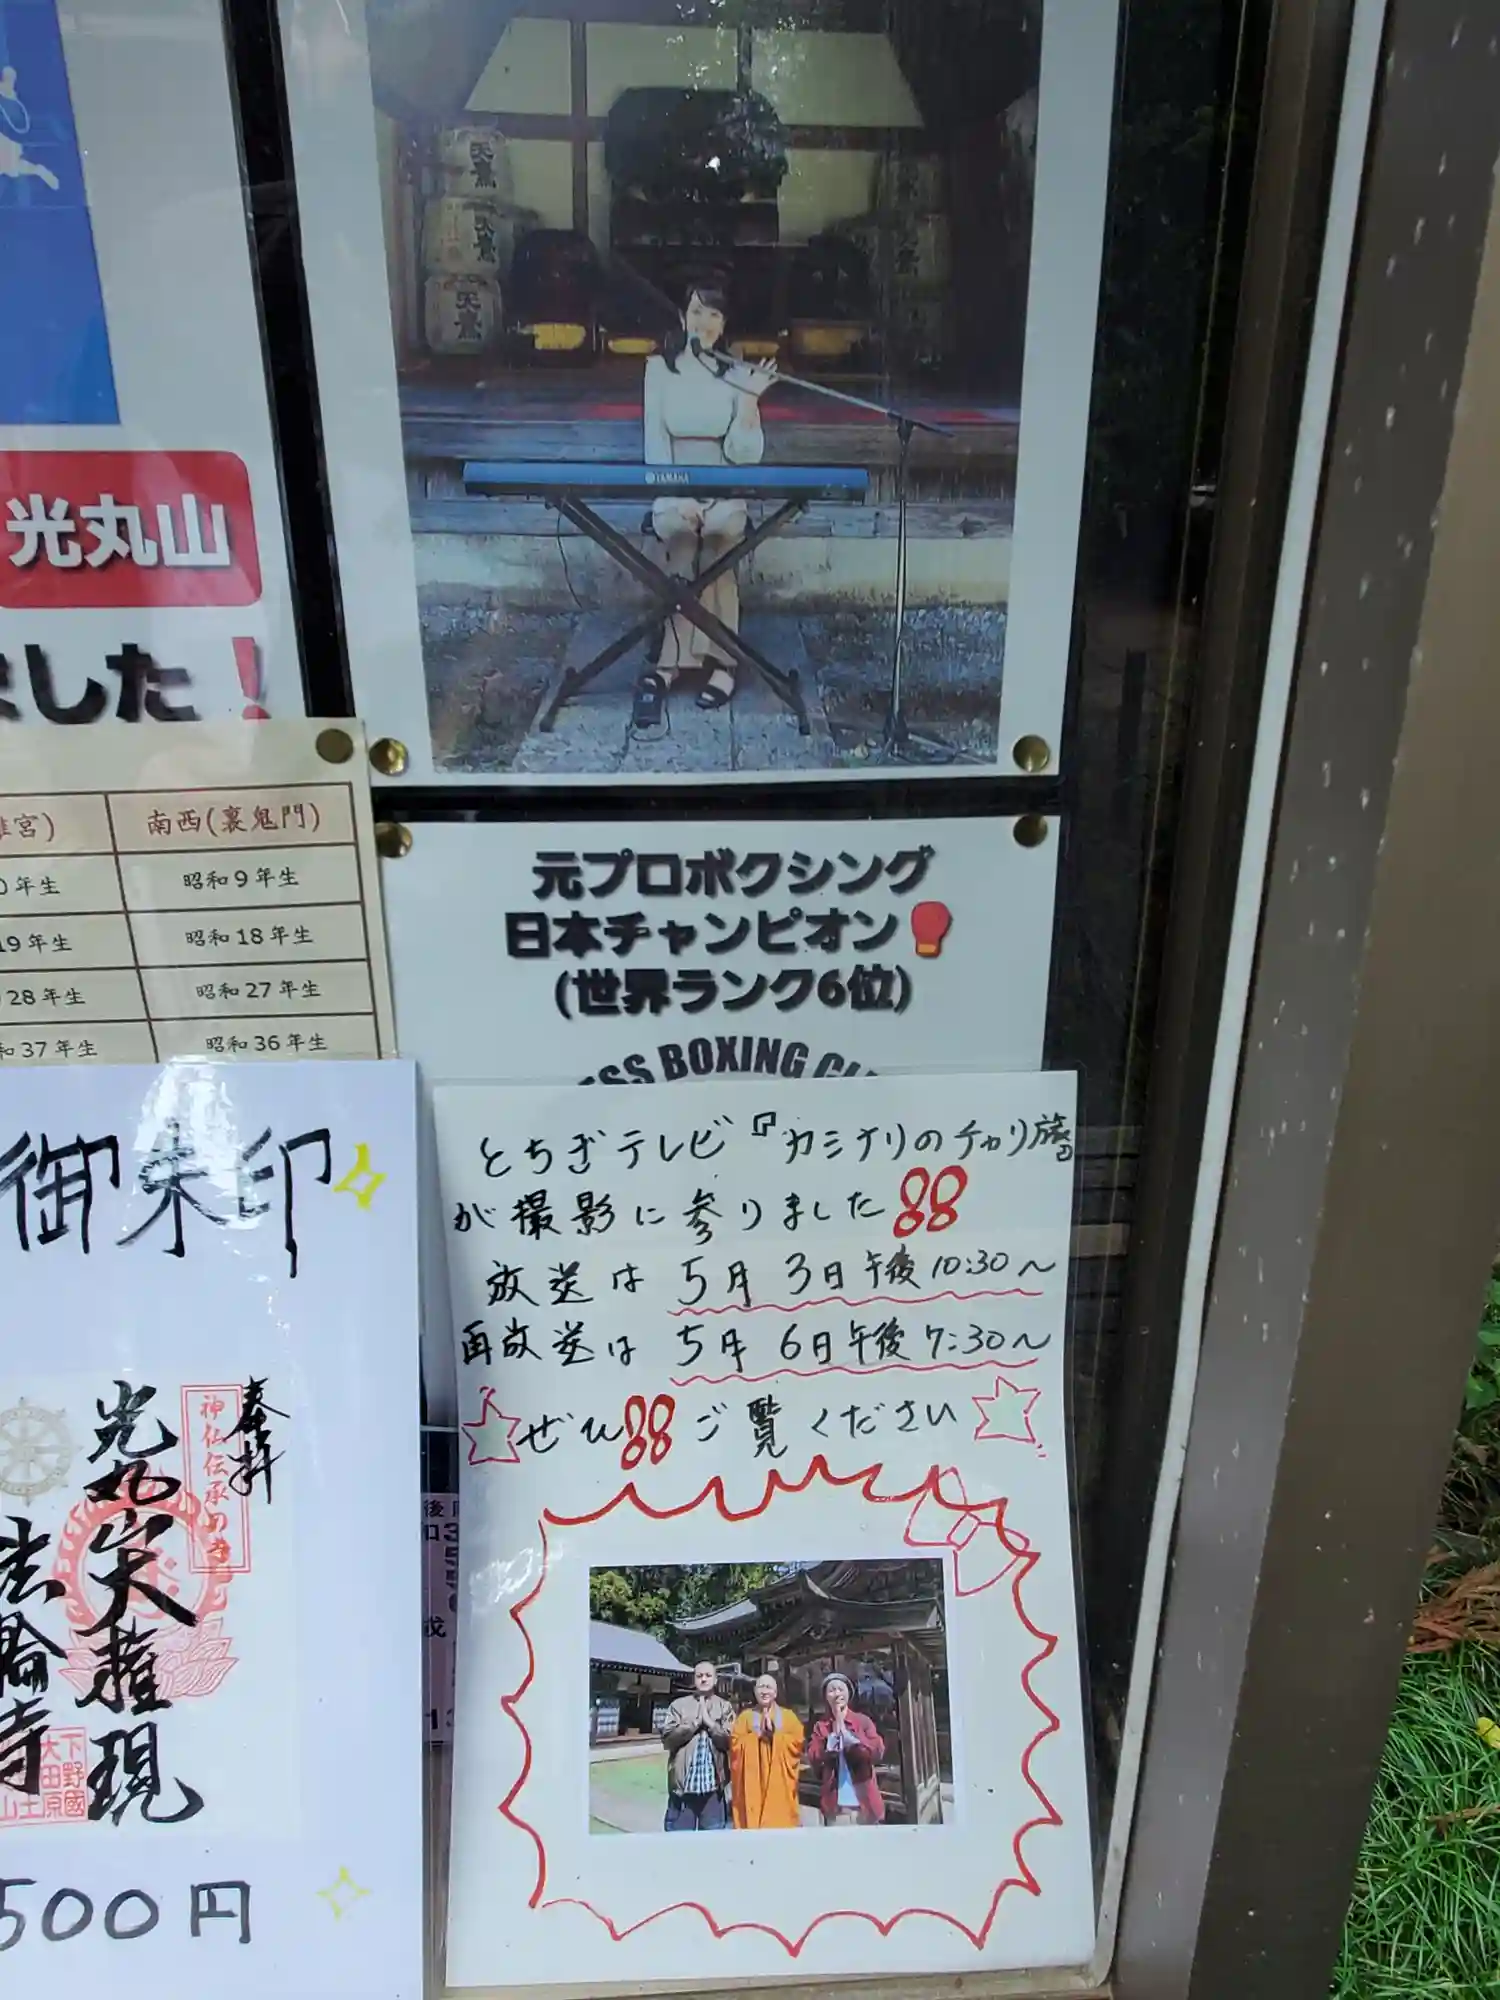 天鷹
天鷹
天鷹
YAMAHA
光丸山
ました！
南西(裏鬼門)
0年生
昭和9年生
19年生
昭和18年生
28年生
昭和27年生
和37年生
昭和36年生
元プロボクシング
日本チャンピオン
(世界ランク6位)
ESS BOXING CL
御朱印
奉拝
神仏伝承の寺
光丸山大権現
法輪寺
下野國
大田原
500円
とちぎテレビ『カミナリのチャリ旅』
が撮影に参りました!!
放送は 5月3日午後10:30〜
再放送は 5月6日午後7:30〜
ぜひ!!ご覧ください